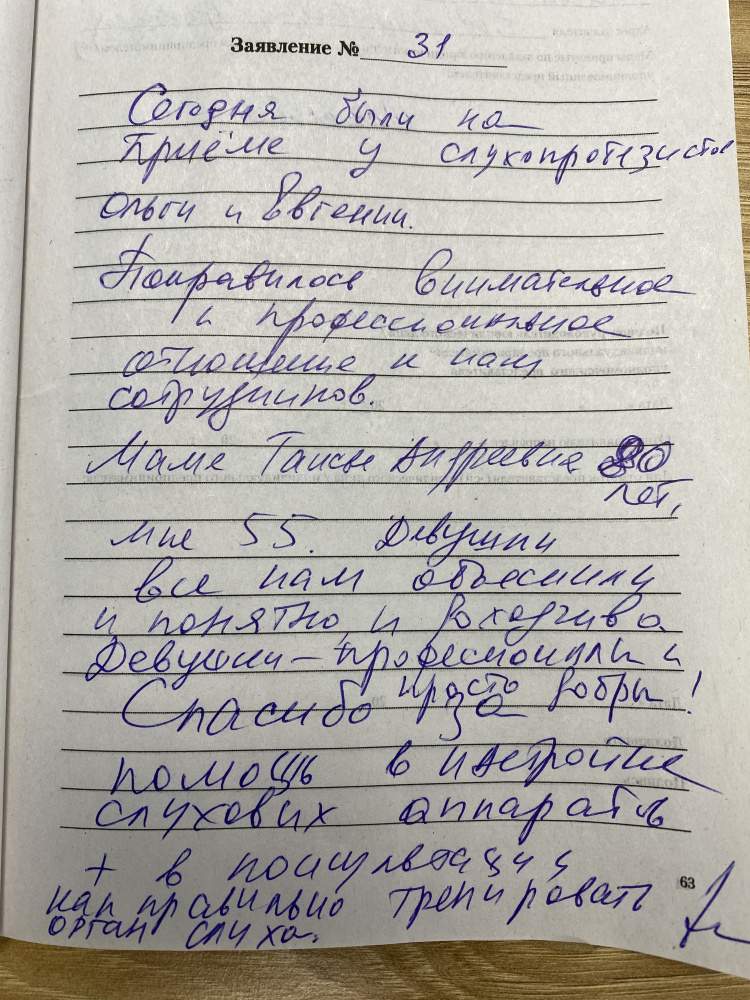 Заявление № 31
Сегодня были на
приёме у слухопротезистов
Ольги и Евгении.
Понравилось внимательное
и профессиональное
отношение к нам
сотрудников.
Маме Таисье Андреевне 80
лет,
мне 55. Девушки
все нам объеснили
и понятно, и доходчиво
Девушки – професионалы и
просто добры!
Спасибо за
помощь в настройке
слухових аппаратов
+ в консультации
как правильно тренировать
орган слуха.
63